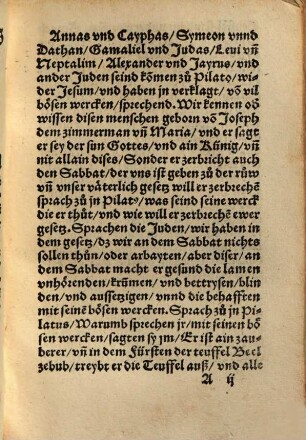 Annas vnd Cayphas/Symeon vnnd
Dathan/Gamaliel vnd Judas/Leui vñ
Neptalim/Alexander vnd Jayrus/vnd
ander Juden seind kõmen zů Pilato/wi⸗
der Jesum/vnd haben jn verklagt/võ vil
bösen wercken/sprechend. Wir kennen oď
wissen disen menschen geborn võ Joseph
dem zimerman vñ Maria/vnd er sagt
er sey der sun Gottes/vnd ain Künig/vñ
nit allain dises/Sonder er zerbricht auch
den Sabbat/der vns ist geben zů der růw
vñ vnser våterlich gesetz will er zerbrechẽ
sprach zů jn Pilatꝰ/was seind seine werck
die er thůt/vnd wie will er zerbrechẽ ewer
gesetz. Sprachen die Juden/wir haben in
dem gesetz/dz wir an dem Sabbat nichts
sollen thůn/oder arbayten/aber diser/an
dem Sabbat macht er gesund die lamen
vnhörenden/krũmen/vnd bettrysen/blin
den/vnd aussetzigen/vnnd die behafften
mit seinẽ bösen wercken. Sprach zů jn Pi⸗
latus/Warumb sprechen jr/mit seinen bö
sen wercken/sagten sy jm/Er ist ain zau⸗
berer/vñ in dem Fürsten der teuffel Beel
zebub/treybt er die Teuffel auß/vnd alle
A ij